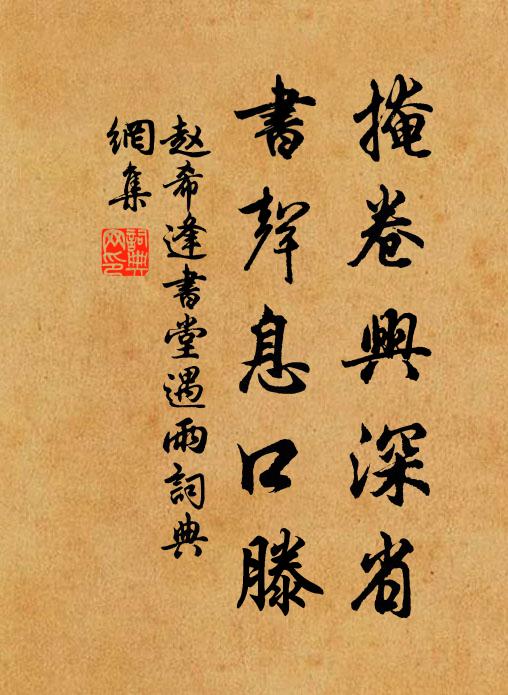 掩卷興深省
書聲息口滕
赵希逢書堂遇雨詞典
網集
詞典
网印